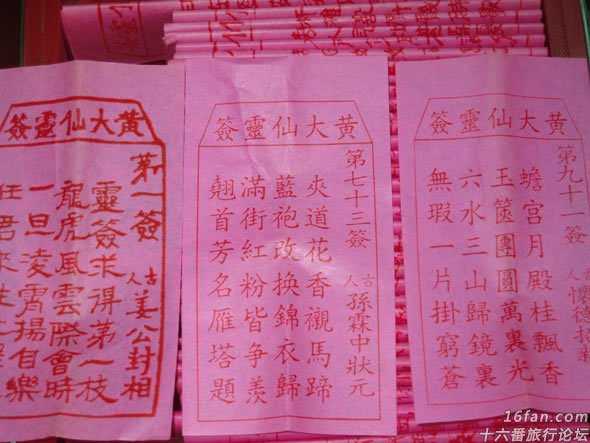 黃大仙靈簽
第一簽
古人 姜公封相
靈簽求得第一枝
龍虎風雲際會時
一旦凌霄揚自樂
任君來往
黃大仙靈簽
第七十三簽
古人 孫霖中狀元
夾道花香襯馬蹄
藍袍改換錦衣歸
滿街紅粉皆爭羨
翹首芳名雁塔題
黃大仙靈簽
第九十一簽
古人 懷德招
蟾宮月殿桂飄香
玉篋團圓萬裏光
六水三山歸鏡裏
無瑕一片掛窮蒼
16fan.com
十六番旅行论坛